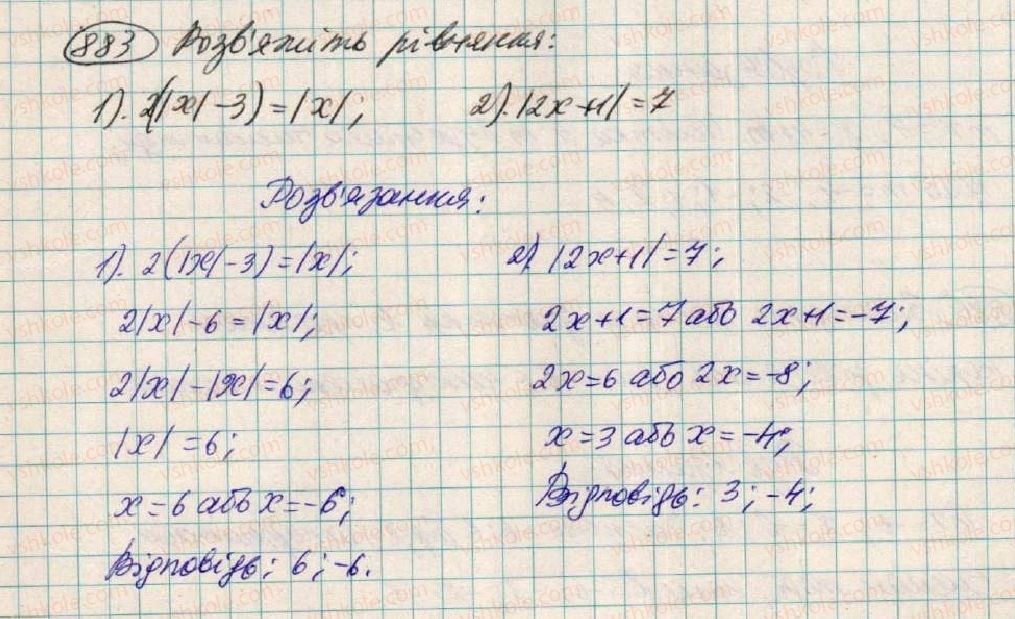 883 Розв'яжіть рівняння:
1). 2(|x| -3) = |x|; 2). |2x+1| = 7
Розв'язання:
1). 2(|x| -3) = |x|;
2|x| -6 = |x|;
2|x| - |x| = 6;
|x| = 6;
x = 6 або x = -6;
Відповідь: 6; -6.
2). |2x+1| = 7;
2x+1 = 7 або 2x+1 = -7;
2x = 6 або 2x = -8;
x = 3 або x = -4;
Відповідь: 3; -4;